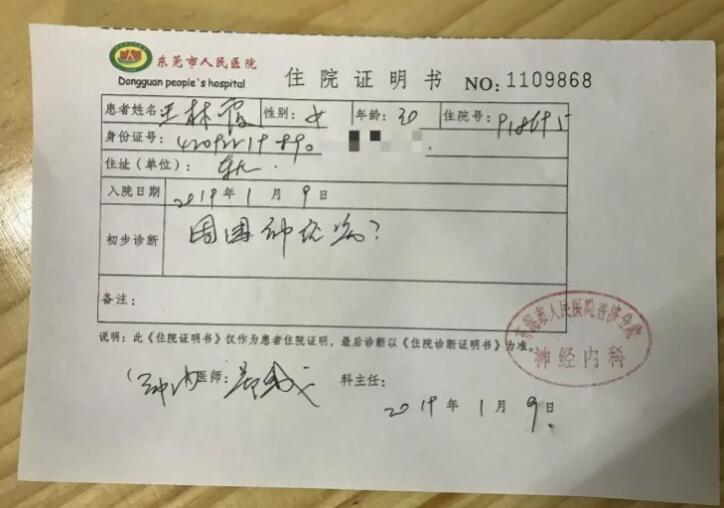 东莞市人民医院
Dongguan people`s hospital
住院证明书 NO:1109868
患者姓名 王林霞 性别: 女 年龄: 30 住院号: 918695
身份证号:
住址(单位):
入院日期 2019年1月9日
初步诊断 周围神经病?
备注:
说明: 此《住院证明书》仅作为患者住院证明, 最后诊断以《住院诊断证明书》为准。
神内 医师: 科主任:
2019年1月9日
东莞市人民医院普济分院
神经内科